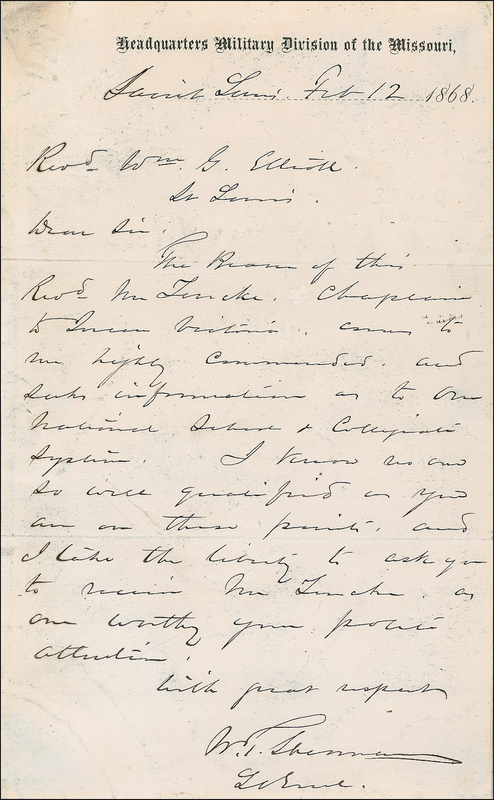 Headquarters Military Division of the Missouri,
Saint Louis. Feb 12 1868.
Revd. Wm. G. Elliott.
St Louis.
Dear Sir.
The Bearer of this
Revd. Mr. Chaplain
to Queen Victoria, comes to
me highly commended. and
seeks information as to our
National School & Collegiate
System. I know no one
so well qualified as you
are on these points, and
I take the liberty to ask you
to receive Mr as
one worthy your polite
attention.
With great respect
W. T. Sherman
Lt Genl.